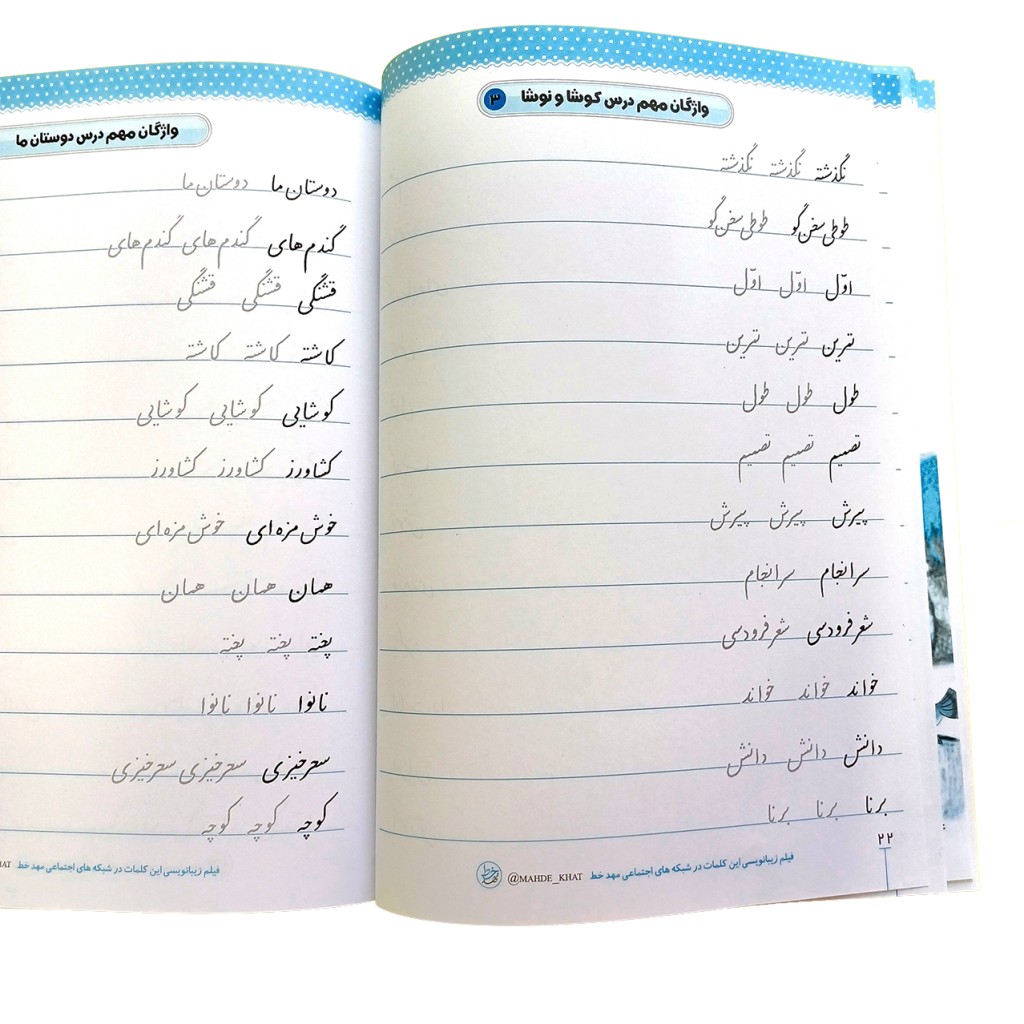 واژگان مهم درس کوشا و نوشا ۳
نگذشته نگذشته نگذشته
طوطی سخن‌گو طوطی سخن‌گو
اوّل اوّل اوّل
تمرین تمرین تمرین
طول طول طول
تصمیم تصمیم تصمیم
سرانجام سرانجام
شعر فرودسی شعر فرودسی
خواند خواند خواند
دانش دانش دانش
برنا برنا برنا
۲۲
فیلم زیبانویسی این کلمات در شبکه های اجتماعی مهد خط @MAHDE_KHAT
واژگان مهم درس دوستان ما
دوستان ما دوستان ما
گندم های گندم های گندم های
قشنگی قشنگی قشنگی
کاشته کاشته کاشته
کوشایی کوشایی کوشایی
کشاورز کشاورز کشاورز
خوش مزه ای خوش مزه ای
همان همان همان
پخته پخته پخته
نانوا نانوا نانوا
سحرخیزی سحرخیزی سحرخیزی
کوچه کوچه کوچه
فیلم زیبانویسی این کلمات در شبکه های اجتماعی مهد خط